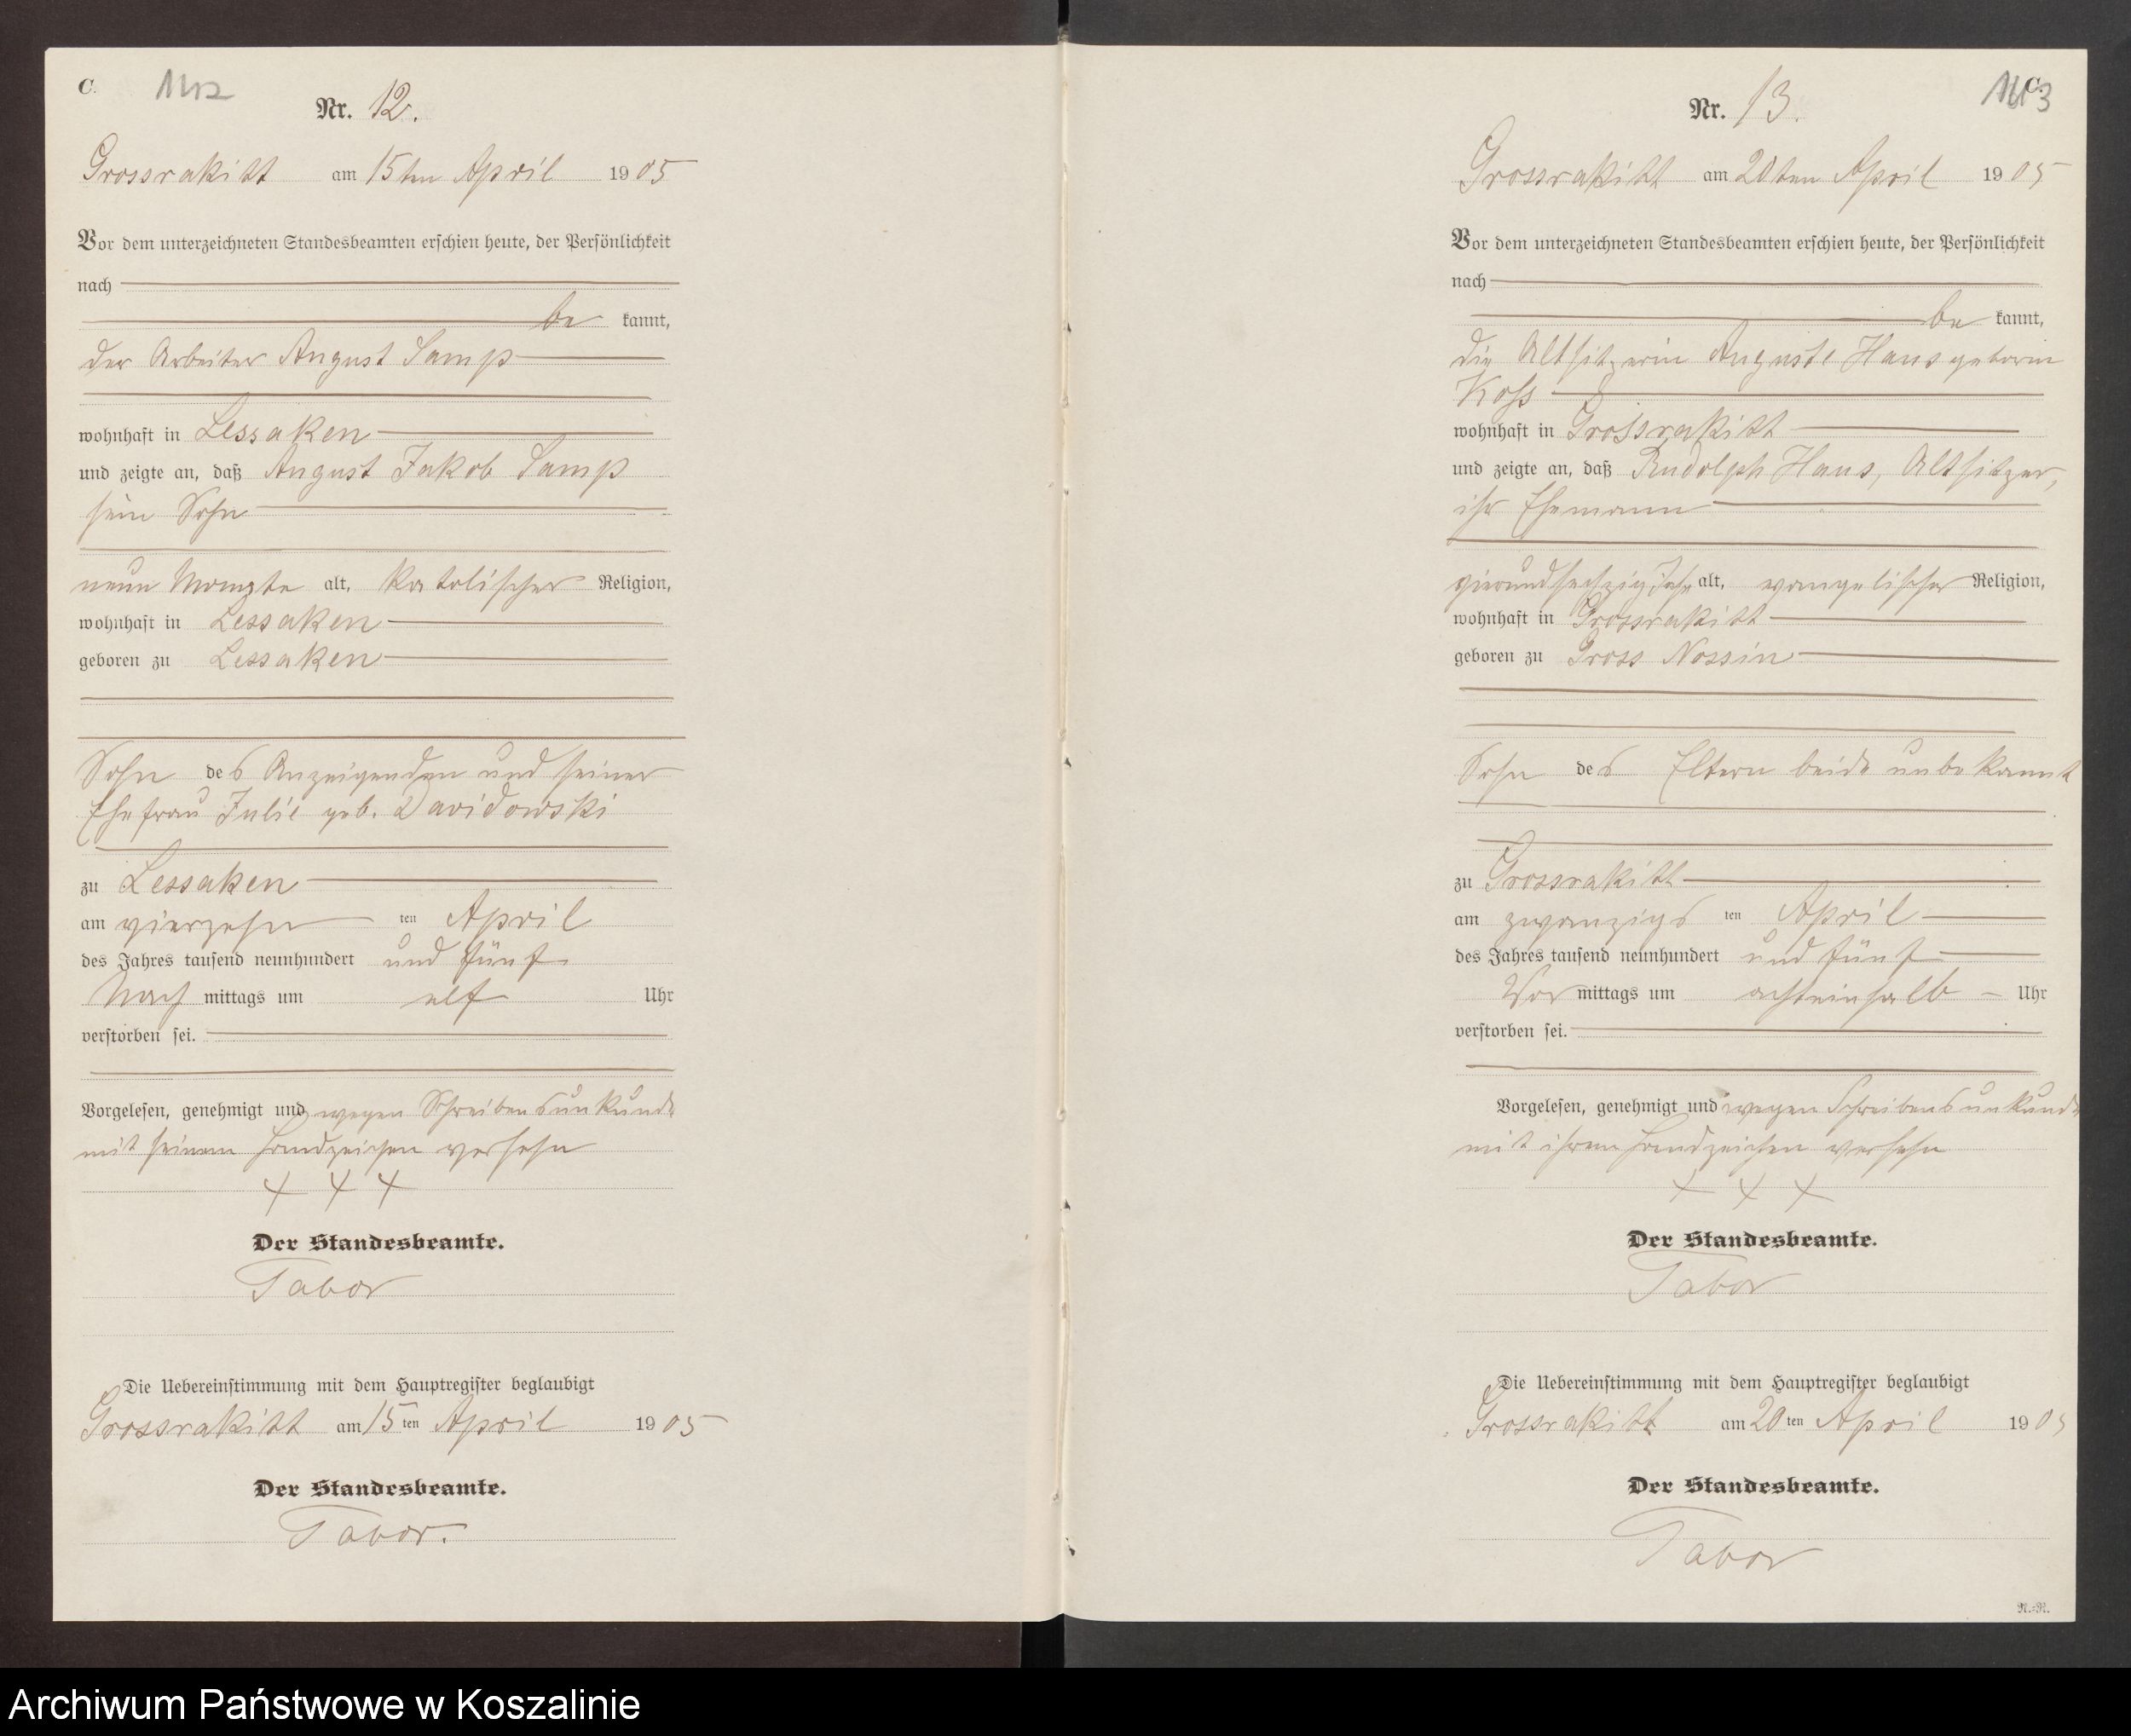 C.
Nr. 12.
Grossrakitt am 15ten April 1905
Vor dem unterzeichneten Standesbeamten erschien heute, der Persönlichkeit
nach
be kannt,
der Arbeiter August Samp
wohnhaft in Lessaken
und zeigte an, daß August Jakob Samp
sein Sohn
neun Monate alt, katolischer Religion,
wohnhaft in Lessaken
geboren zu Lessaken
Sohn des Anzeigenden und seiner
Ehefrau Julie geb. Davidowski
zu Lessaken
am vierzehn ten April
des Jahres tausend neunhundert und fünf
Nach mittags um elf Uhr
verstorben sei.
Vorgelesen, genehmigt und wegen Schreibensunkunde
mit seinem Handzeichen versehn
+ + +
Der Standesbeamte.
Tabor
Die Uebereinstimmung mit dem Hauptregister beglaubigt
Grossrakitt am 15ten April 1905
Der Standesbeamte.
Tabor.
C.
Nr. 13.
Grossrakitt am 20ten April 1905
Vor dem unterzeichneten Standesbeamten erschien heute, der Persönlichkeit
nach
be kannt,
die Altsitzerin Auguste Haus geborin
Koss
wohnhaft in Grossrakitt
und zeigte an, daß Rudolph Haus, Altsitzer,
ihr Ehemann
vierundsechzig Jahr alt, evangelischer Religion,
wohnhaft in Grossrakitt
geboren zu Gross Nossin
Sohn des Eltern beide unbekannt
zu Grossrakitt
am zwanzigs ten April
des Jahres tausend neunhundert und fünf
Vor mittags um achteinhalb Uhr
verstorben sei.
Vorgelesen, genehmigt und wegen Schreibensunkunde
mit ihrem Handzeichen versehn
+ + +
Der Standesbeamte.
Tabor
Die Uebereinstimmung mit dem Hauptregister beglaubigt
Grossrakitt am 20ten April 1905
Der Standesbeamte.
Tabor
R.=R.
Archiwum Państwowe w Koszalinie